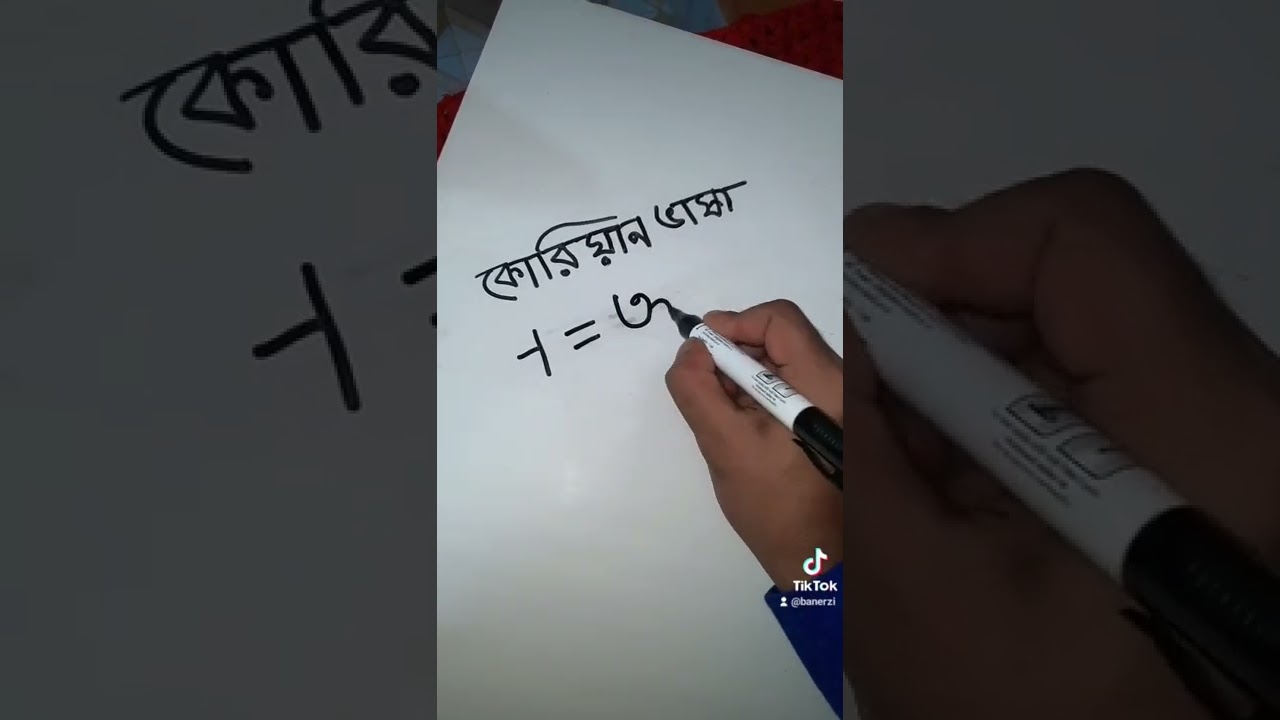 কোরিয়ান ভাষা
ㅓ = অ
TikTok
@banerzi